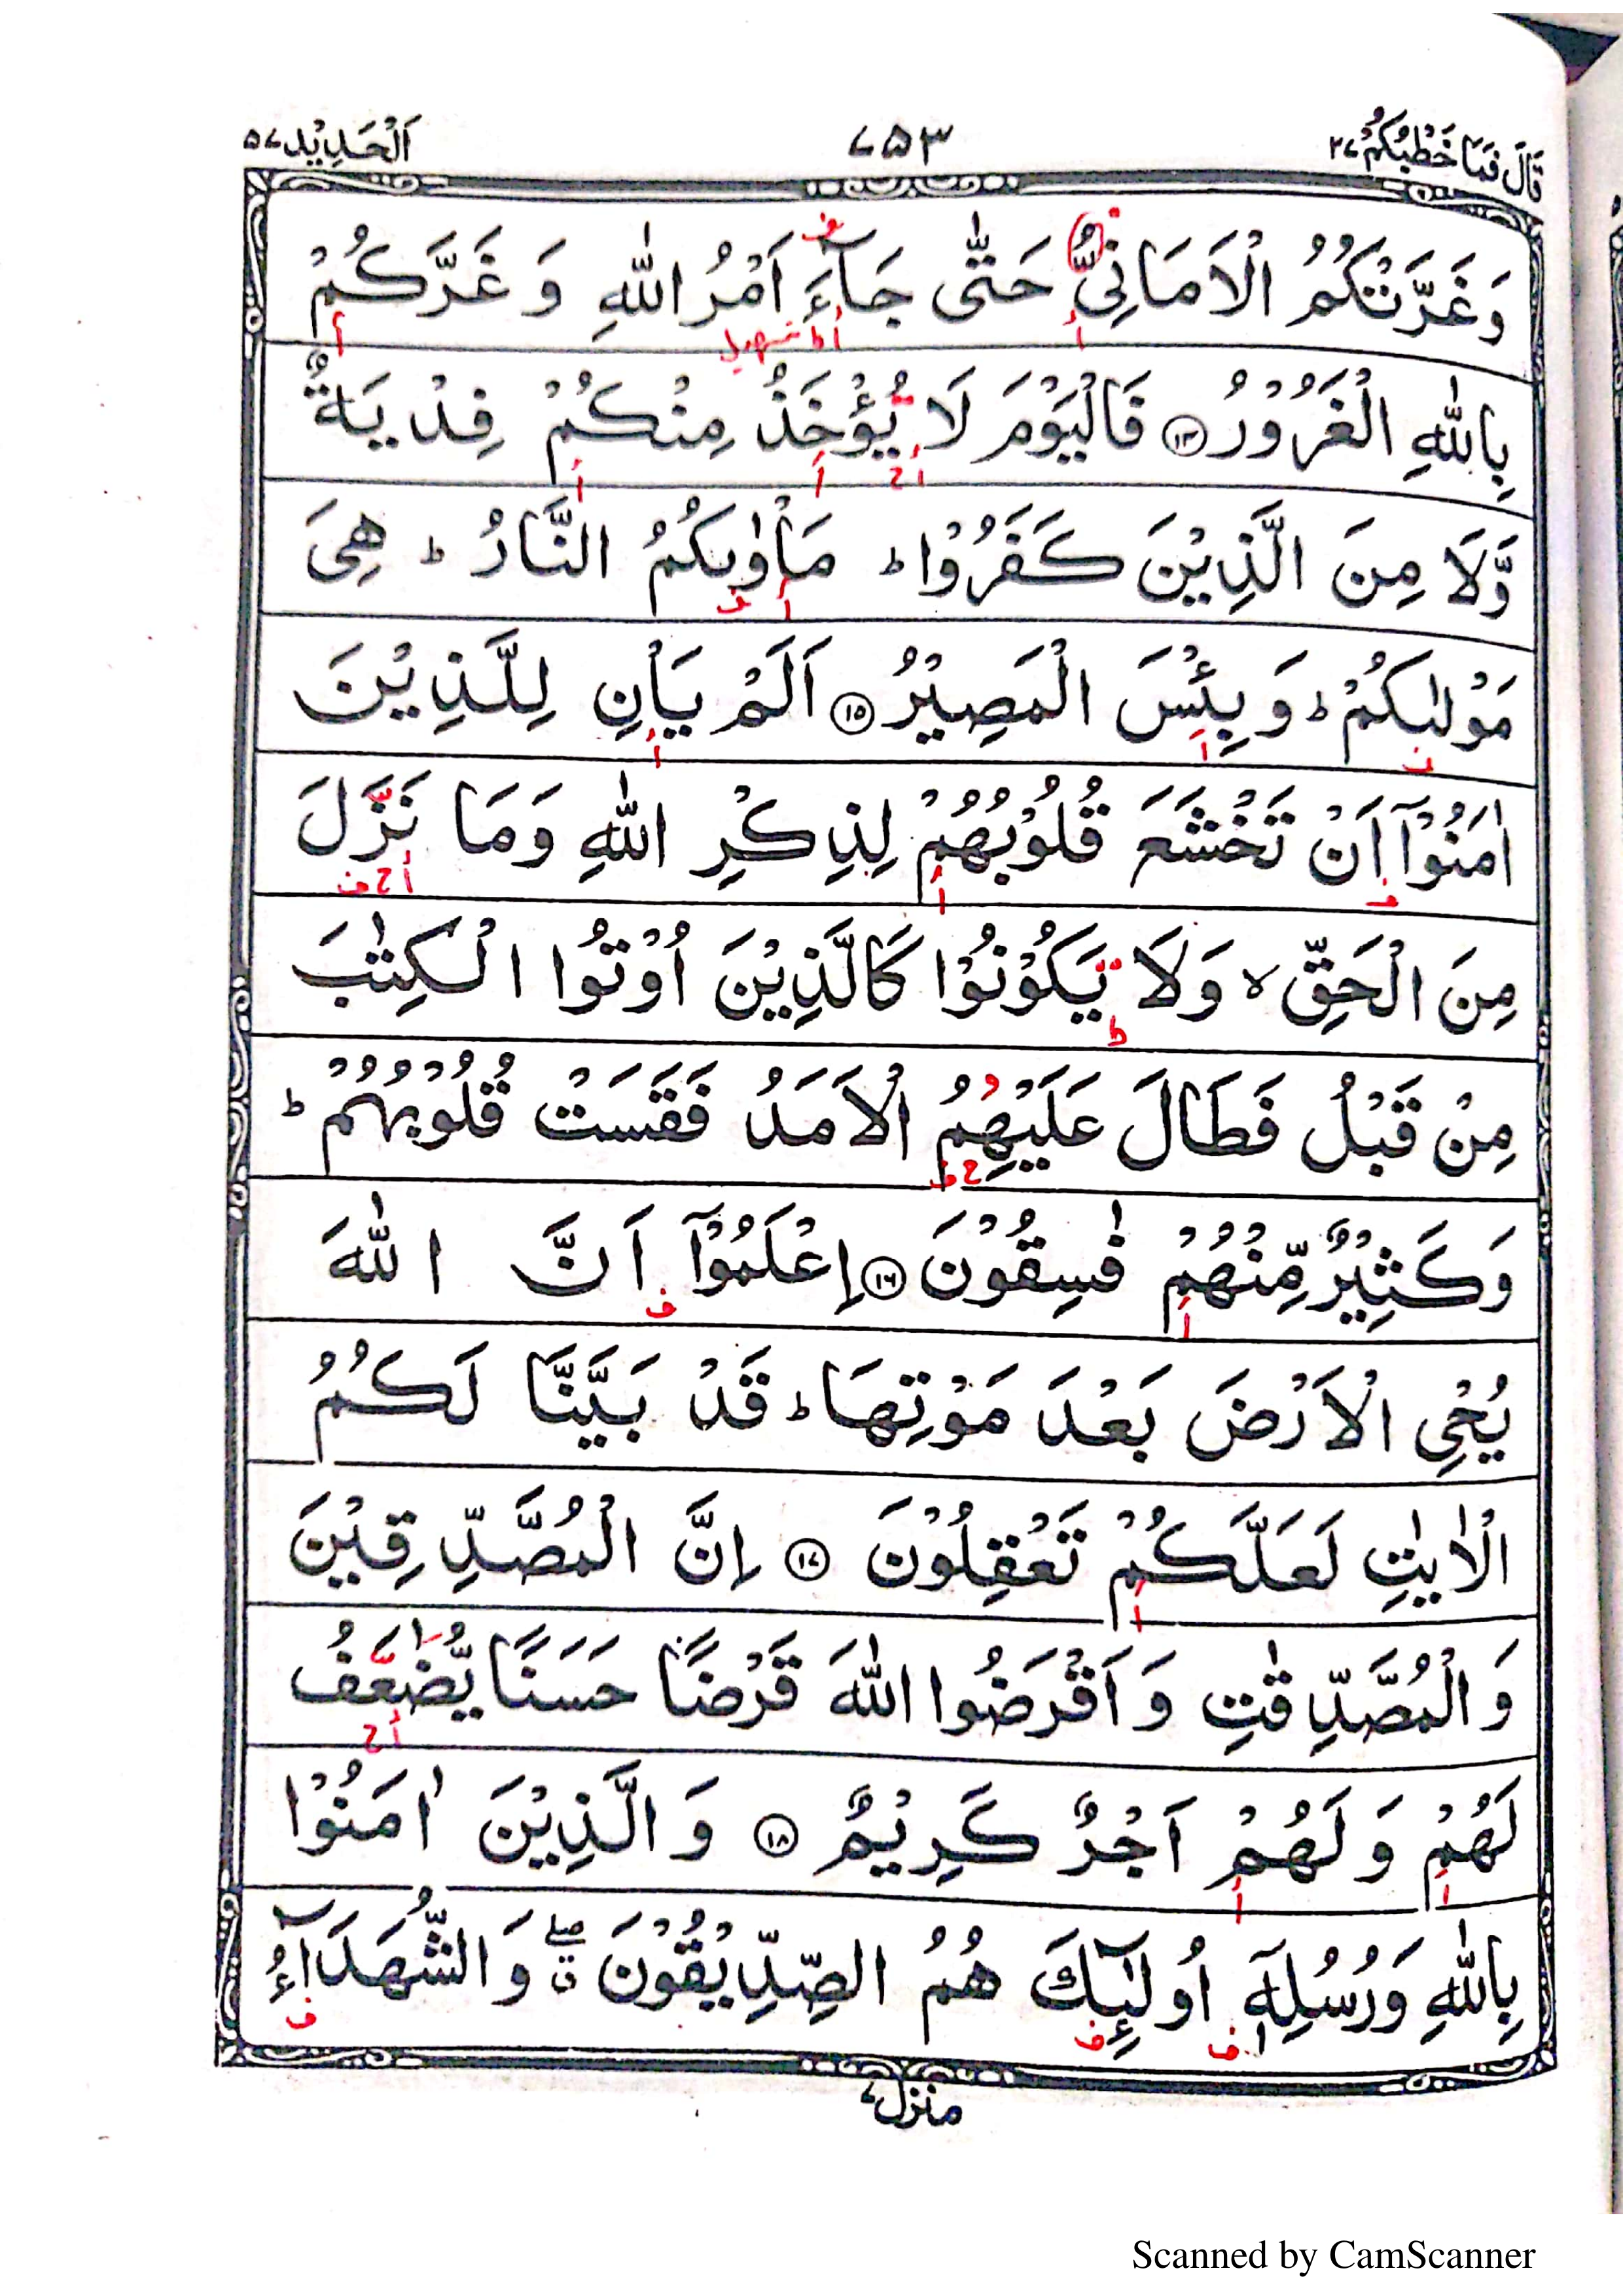 قَالَ فَمَا خَطْبُكُمْ ٢٧
٧٥٣
اَلْحَدِيْد ٥٧
وَغَرَّتْكُمُ الْاَمَانِیُّ حَتّٰی جَآءَ اَمْرُ اللّٰهِ وَ غَرَّكُمْ
بِاللّٰهِ الْغَرُوْرُ ۝١٤ فَالْيَوْمَ لَا يُؤْخَذُ مِنْكُمْ فِدْيَةٌ
وَّلَا مِنَ الَّذِيْنَ كَفَرُوْا ؕ مَاْوٰىكُمُ النَّارُ ؕ هِیَ
مَوْلٰىكُمْ ؕ وَ بِئْسَ الْمَصِيْرُ ۝١٥ اَلَمْ يَاْنِ لِلَّذِيْنَ
اٰمَنُوْۤا اَنْ تَخْشَعَ قُلُوْبُهُمْ لِذِكْرِ اللّٰهِ وَمَا نَزَلَ
مِنَ الْحَقِّ ۙ وَلَا يَكُوْنُوْا كَالَّذِيْنَ اُوْتُوا الْكِتٰبَ
مِنْ قَبْلُ فَطَالَ عَلَيْهِمُ الْاَمَدُ فَقَسَتْ قُلُوْبُهُمْ ؕ
وَكَثِيْرٌ مِّنْهُمْ فٰسِقُوْنَ ۝١٦ اِعْلَمُوْۤا اَنَّ اللّٰهَ
يُحْیِ الْاَرْضَ بَعْدَ مَوْتِهَا ؕ قَدْ بَيَّنَّا لَكُمُ
الْاٰيٰتِ لَعَلَّكُمْ تَعْقِلُوْنَ ۝١٧ اِنَّ الْمُصَّدِّقِيْنَ
وَالْمُصَّدِّقٰتِ وَ اَقْرَضُوا اللّٰهَ قَرْضًا حَسَنًا يُّضٰعَفُ
لَهُمْ وَ لَهُمْ اَجْرٌ كَرِيْمٌ ۝١٨ وَ الَّذِيْنَ اٰمَنُوْا
بِاللّٰهِ وَرُسُلِهٖۤ اُولٰٓئِكَ هُمُ الصِّدِّيْقُوْنَ ۖۗ وَ الشُّهَدَآءُ
منزل ٧
Scanned by CamScanner